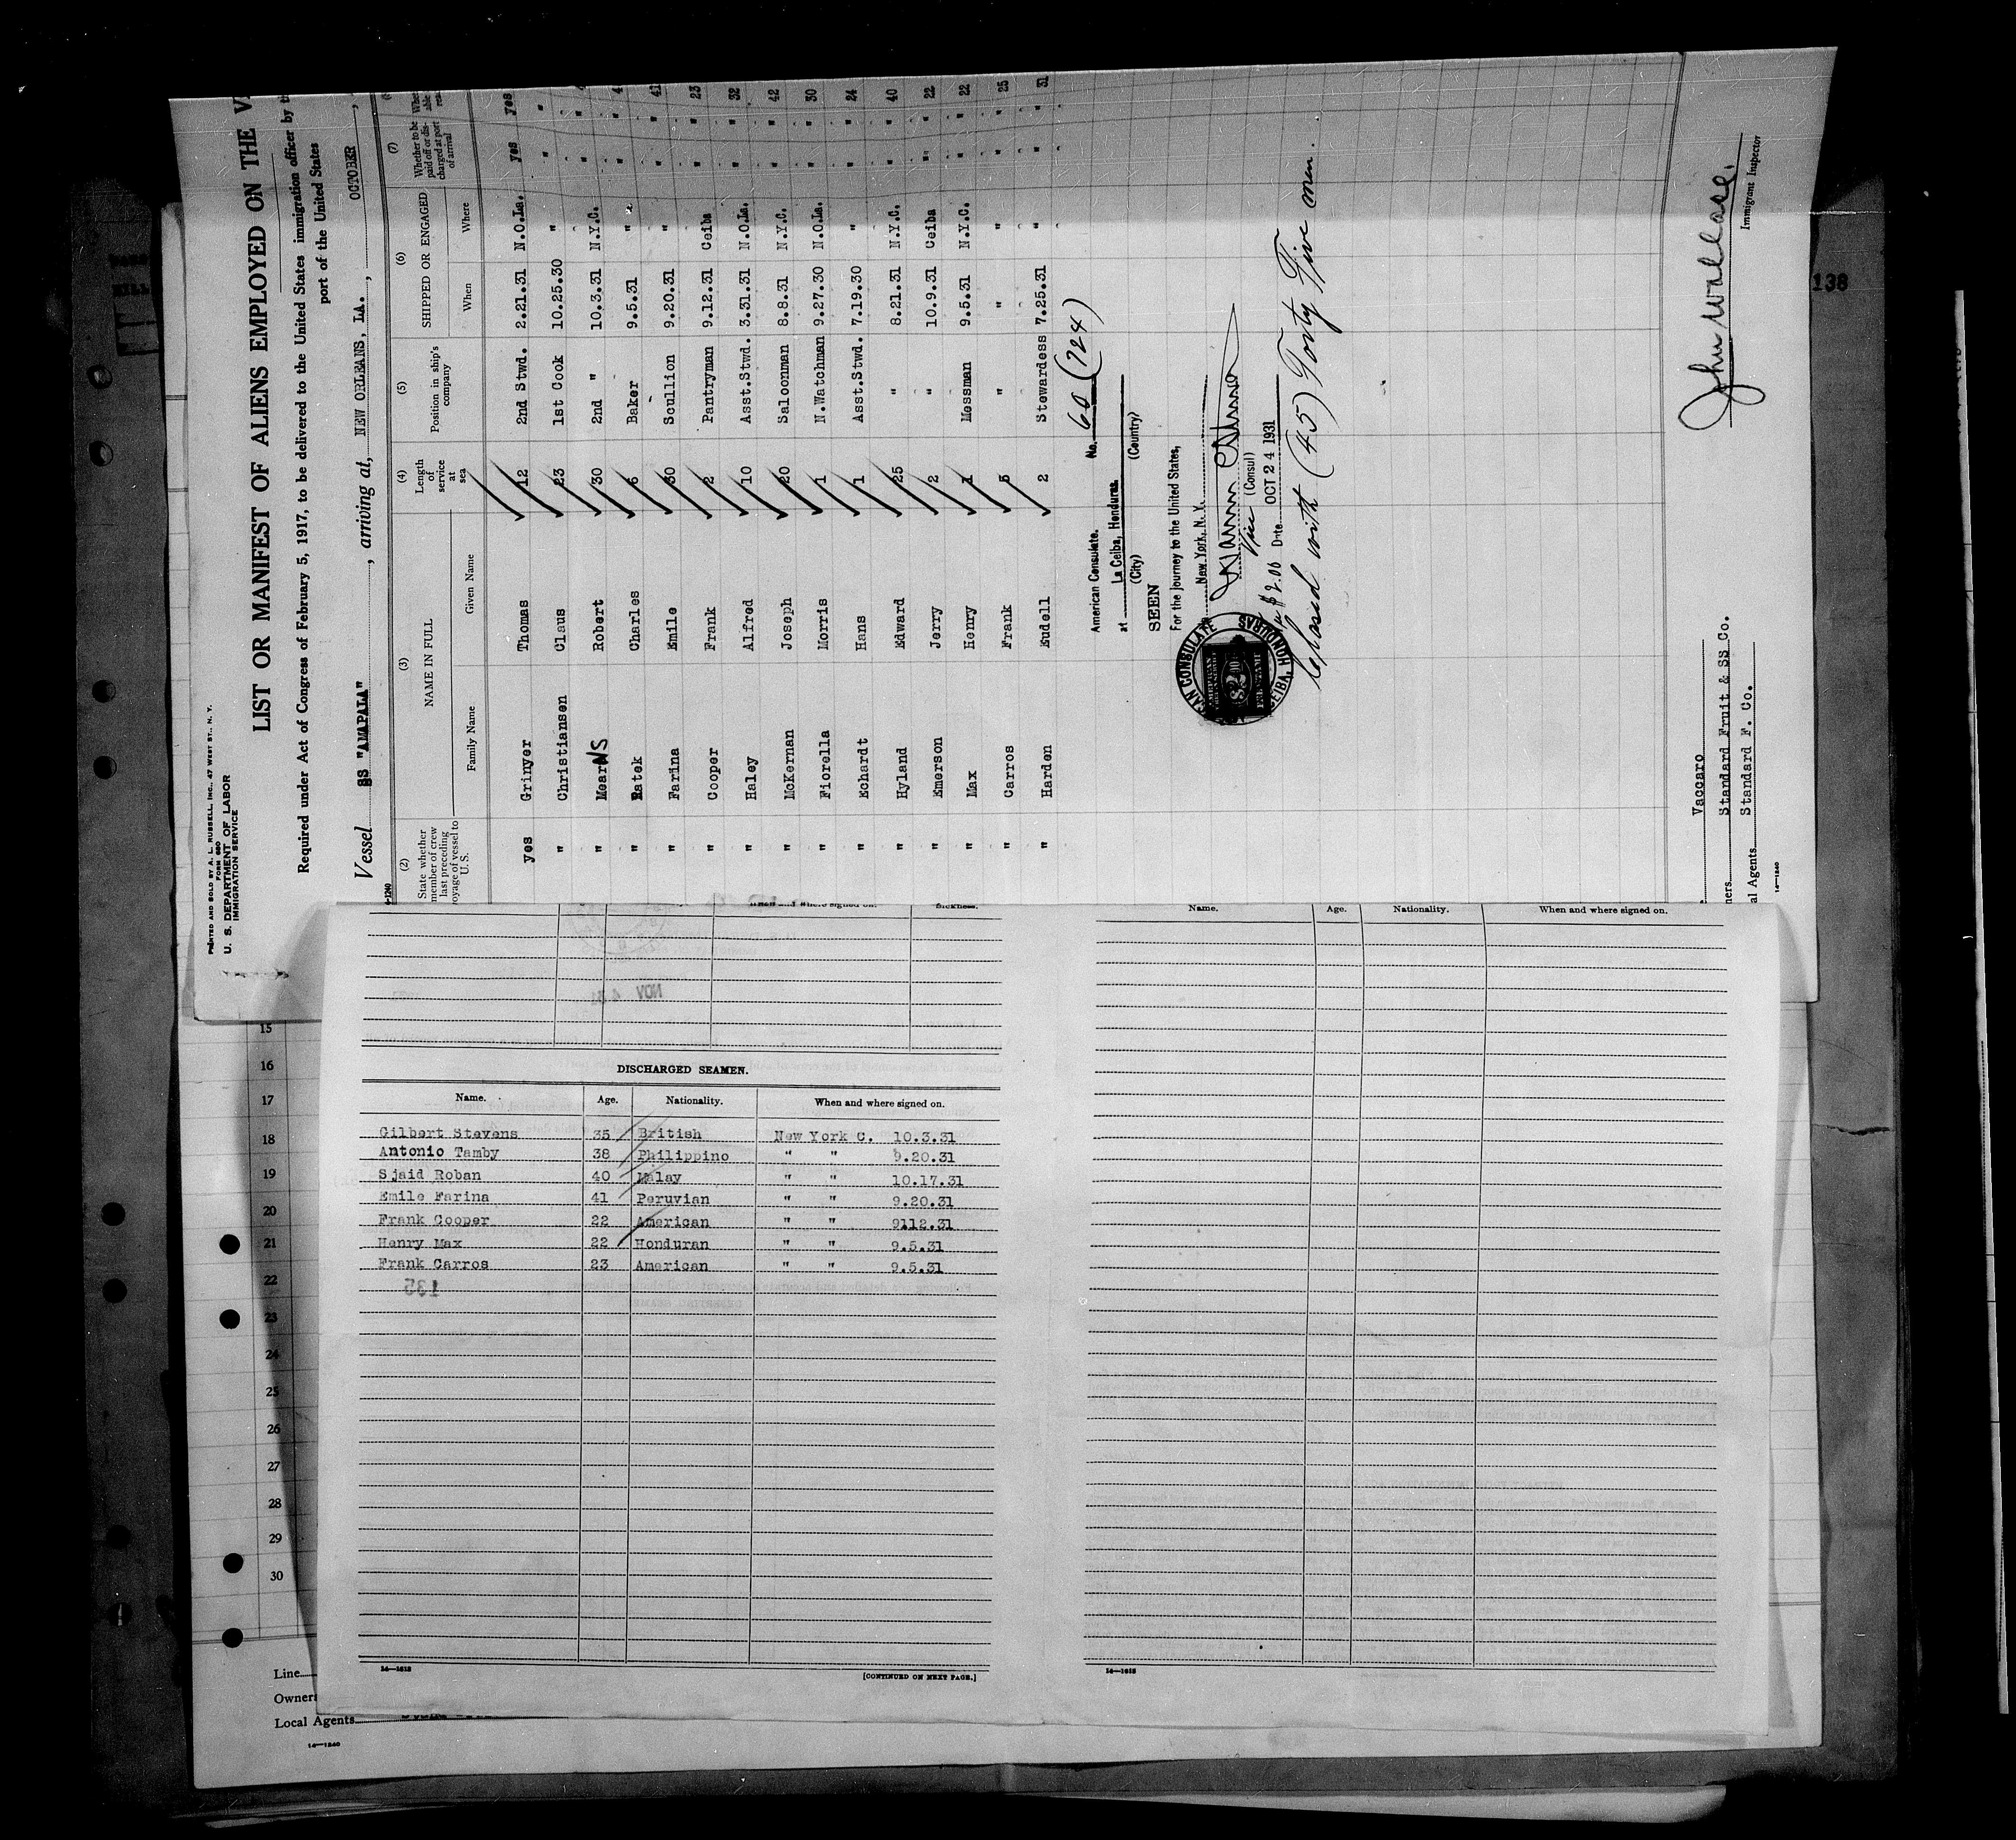 PRINTED AND SOLD BY A. L. RUSSELL, INC., 47 WEST ST., N. Y.
FORM 680
U. S. DEPARTMENT OF LABOR
IMMIGRATION SERVICE
LIST OR MANIFEST OF ALIENS EMPLOYED ON THE
Required under Act of Congress of February 5, 1917, to be delivered to the United States immigration officer by
port of the United States
Vessel SS "AMAPALA", arriving at, NEW ORLEANS, LA., OCTOBER
(2) (3) (4) (5) (6) (7)
State whether member of crew last preceding voyage of vessel to U. S.
NAME IN FULL
Family Name Given Name
Length of service at sea
Position in ship's company
SHIPPED OR ENGAGED
When Where
Whether to be paid off or discharged at port of arrival
yes Grinyer Thomas 12 2nd Stwd. 2.21.31 N.O.La. yes yes
" Christiansen Claus 23 1st Cook 10.25.30 " " "
" MearNS Robert 30 2nd " 10.3.31 N.Y.C. " "
" Ratek Charles 6 Baker 9.5.31 " " "
" Farina Emile 30 Scullion 9.20.31 " " " 41
" Cooper Frank 2 Pantryman 9.12.31 Ceiba " " 23
" Haley Alfred 10 Asst.Stwd. 3.31.31 N.O.La. " " 32
" McKernan Joseph 20 Saloonman 8.8.31 N.Y.C. " " 42
" Fiorella Morris 1 N.Watchman 9.27.30 N.O.La. " " 30
" Echardt Hans 1 Asst.Stwd. 7.19.30 " " " 24
" Hyland Edward 25 " 8.21.31 N.Y.C. " " 40
" Emerson Jerry 2 " 10.9.31 Ceiba " " 22
" Max Henry 1 Messman 9.5.31 N.Y.C. " " 22
" Carros Frank 5 " " " " " 25
" Harden Eudell 2 Stewardess 7.25.31 " " " 31
American Consulate. No. 60 (724)
at La Ceiba, Honduras
(City) (Country)
SEEN
For the journey to the United States,
New York, N. Y.
Vice (Consul)
$2.00 Date OCT 24 1931
with (45) Forty Five men.
John Wallace,
Immigrant Inspector
Vaccaro
Owners Standard Fruit & SS Co.
Local Agents Standard F. Co.
14—1240
138
When and where signed on. Sickness.
NOV 4 31
DISCHARGED SEAMEN.
Name. Age. Nationality. When and where signed on.
Gilbert Stevens 35 British New York C. 10.3.31
Antonio Tamby 38 Philippino " " 9.20.31
Sjaid Roban 40 Malay " " 10.17.31
Emile Farina 41 Peruvian " " 9.20.31
Frank Cooper 22 American " " 9112.31
Henry Max 22 Honduran " " 9.5.31
Frank Carros 23 American " " 9.5.31
135
14—1613
[CONTINUED ON NEXT PAGE.]
Name. Age. Nationality. When and where signed on.
14—1613
15
16
17
18
19
20
21
22
23
24
25
26
27
28
29
30
Line
Owners
Local Agents
14—1240